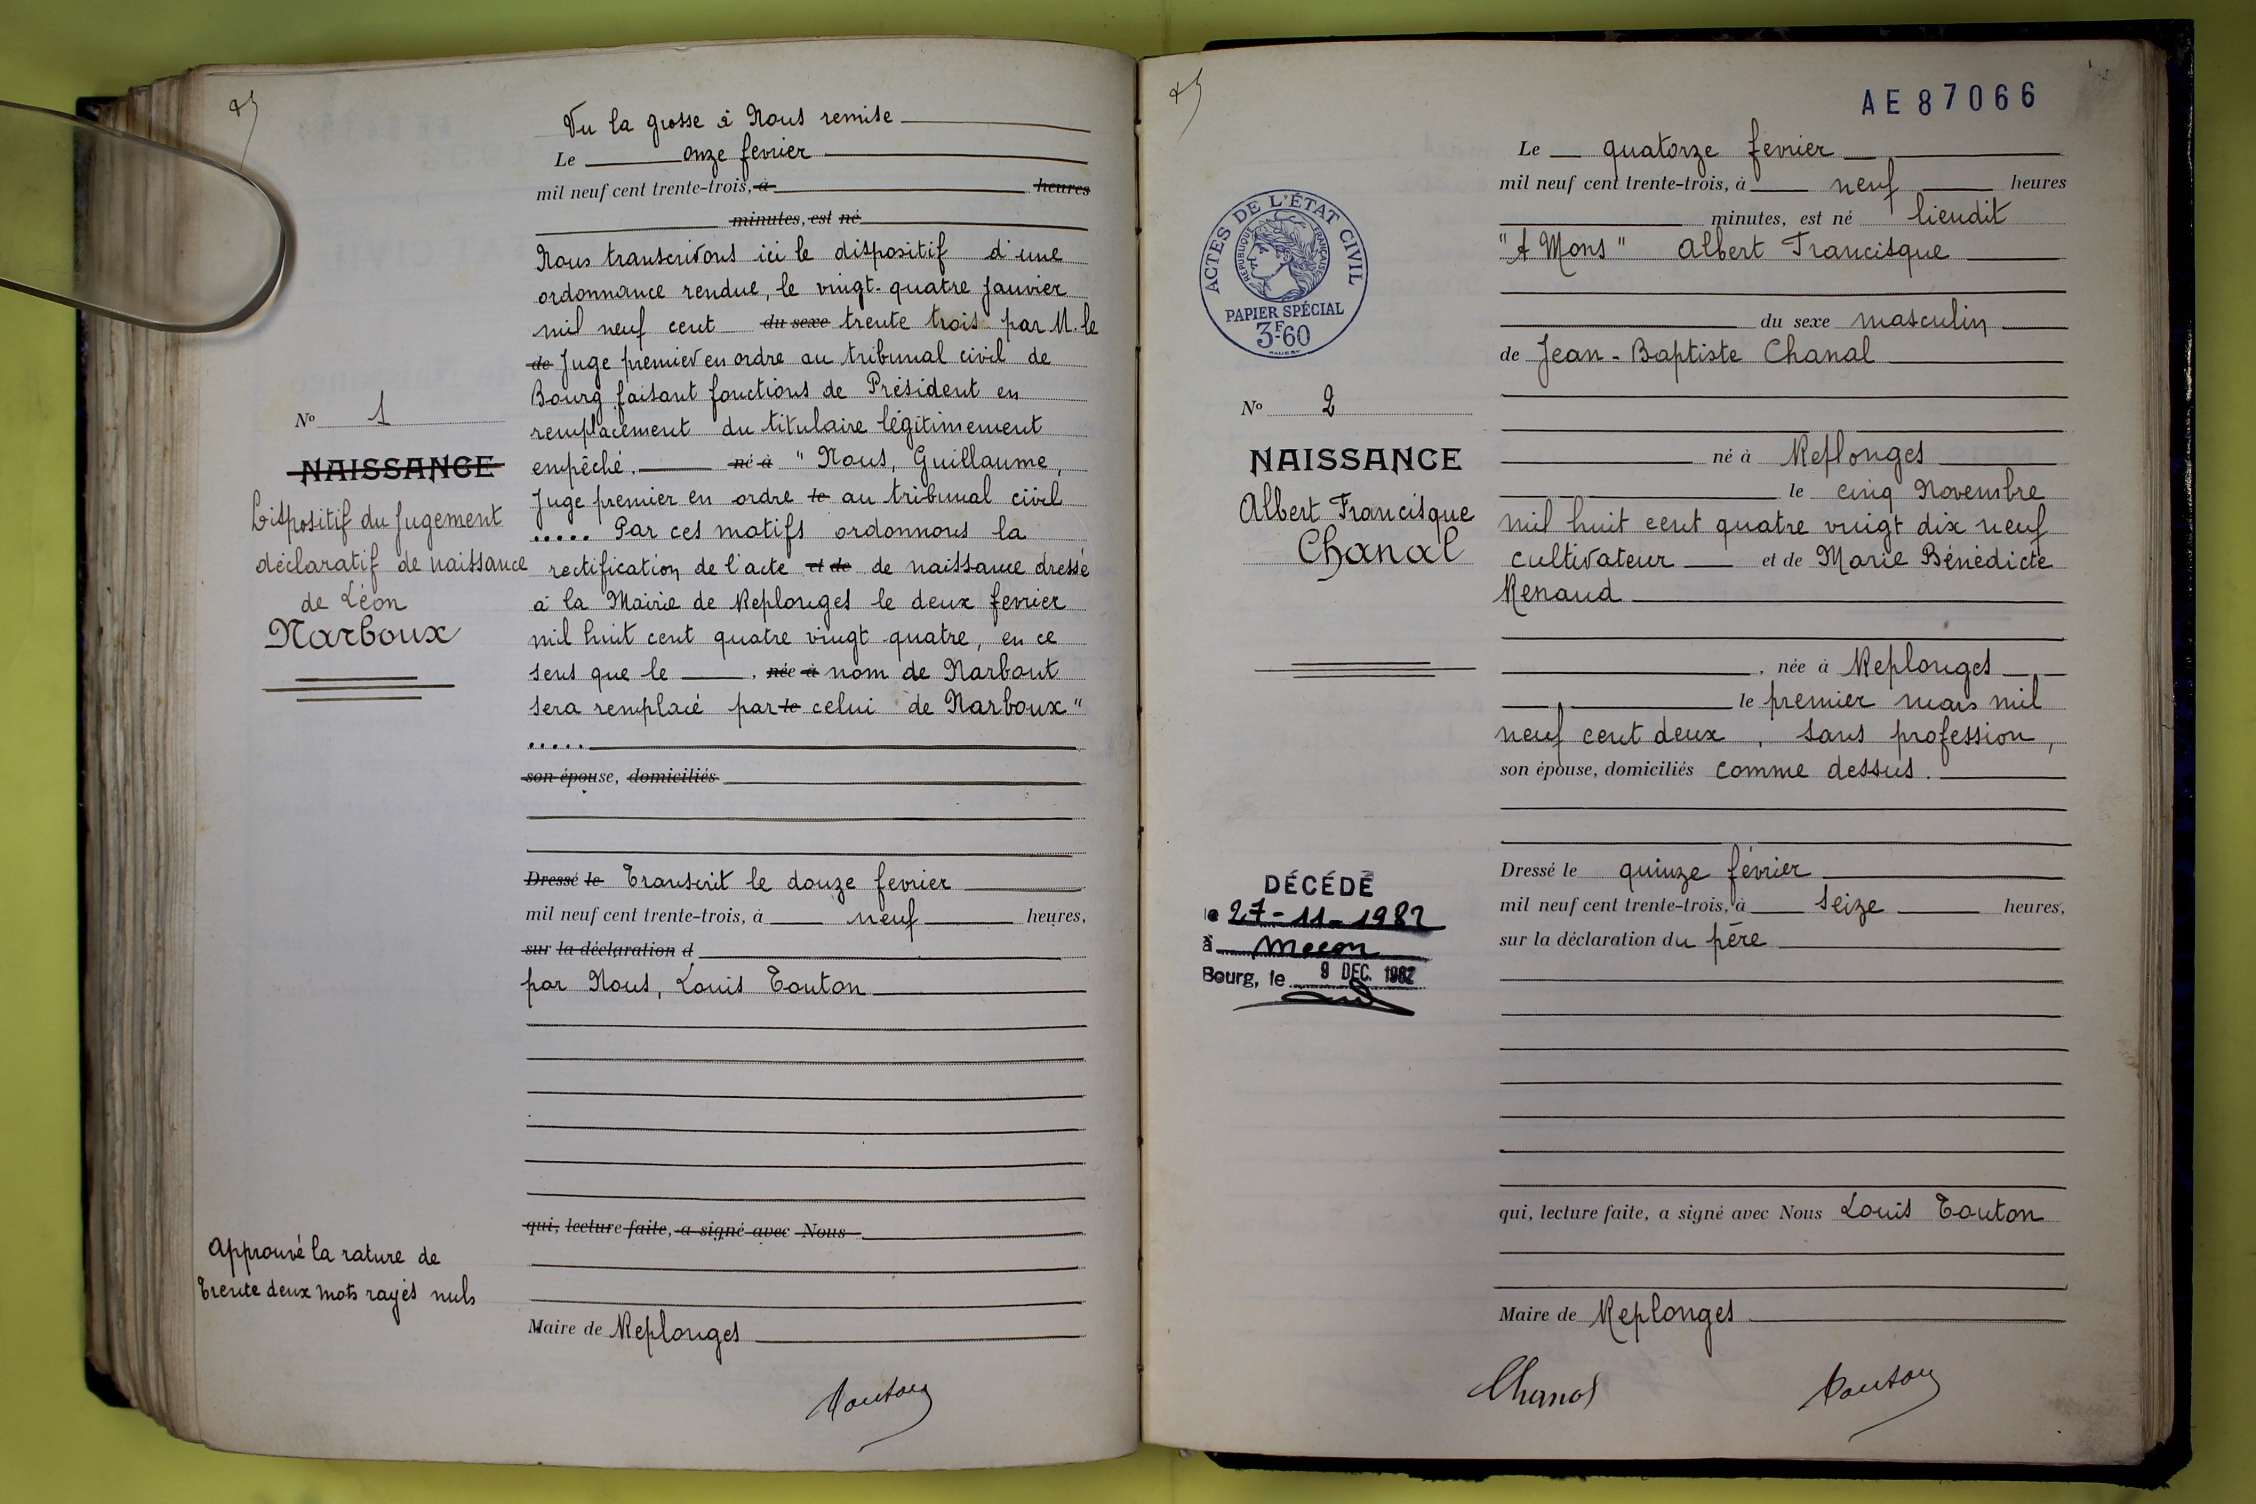 Vu la grosse à Nous remise
Le onze fevrier
mil neuf cent trente-trois, à heures
minutes, est né
Nous transcrivons ici le dispositif d'une
ordonnance rendue, le vingt-quatre Janvier
mil neuf cent du sexe trente trois par M. le
de Juge premier en ordre au tribunal civil de
Bourg faisant fonctions de Président en
remplacement du titulaire légitimement
empêché. né à "Nous, Guillaume,
Juge premier en ordre le au tribunal civil
..... Par ces motifs ordonnons la
rectification de l'acte et de de naissance dressé
à la Mairie de Replonges le deux fevrier
mil huit cent quatre vingt quatre, en ce
sens que le , née à nom de Narbout
sera remplacé par le celui de Narboux"
.....
son épouse, domiciliés
Dressé le Transcrit le douze fevrier
mil neuf cent trente-trois, à neuf heures,
sur la déclaration d
par Nous, Louis Touton
qui, lecture faite, a signé avec Nous
Maire de Replonges
Touton
No 1
NAISSANCE
Dispositif du Jugement
déclaratif de naissance
de Léon
Narboux
Approuvé la rature de
trente deux mots rayés nuls
AE87066
ACTES DE L'ÉTAT CIVIL
RÉPUBLIQUE FRANÇAISE
PAPIER SPÉCIAL
3F60
No 2
NAISSANCE
Albert Francisque
Chanal
DÉCÉDÉ
le 27-11-1982
à Macon
Bourg, le 9 DEC. 1982
Le quatorze fevrier
mil neuf cent trente-trois, à neuf heures
minutes, est né lieudit
"A Mons" Albert Francisque
du sexe masculin
de Jean-Baptiste Chanal
né à Replonges
le cinq Novembre
mil huit cent quatre vingt dix neuf
cultivateur et de Marie Bénédicte
Renaud
, née à Replonges
le premier mars mil
neuf cent deux, sans profession,
son épouse, domiciliés comme dessus.
Dressé le quinze février
mil neuf cent trente-trois, à seize heures,
sur la déclaration du père
qui, lecture faite, a signé avec Nous Louis Touton
Maire de Replonges
Chanal Touton